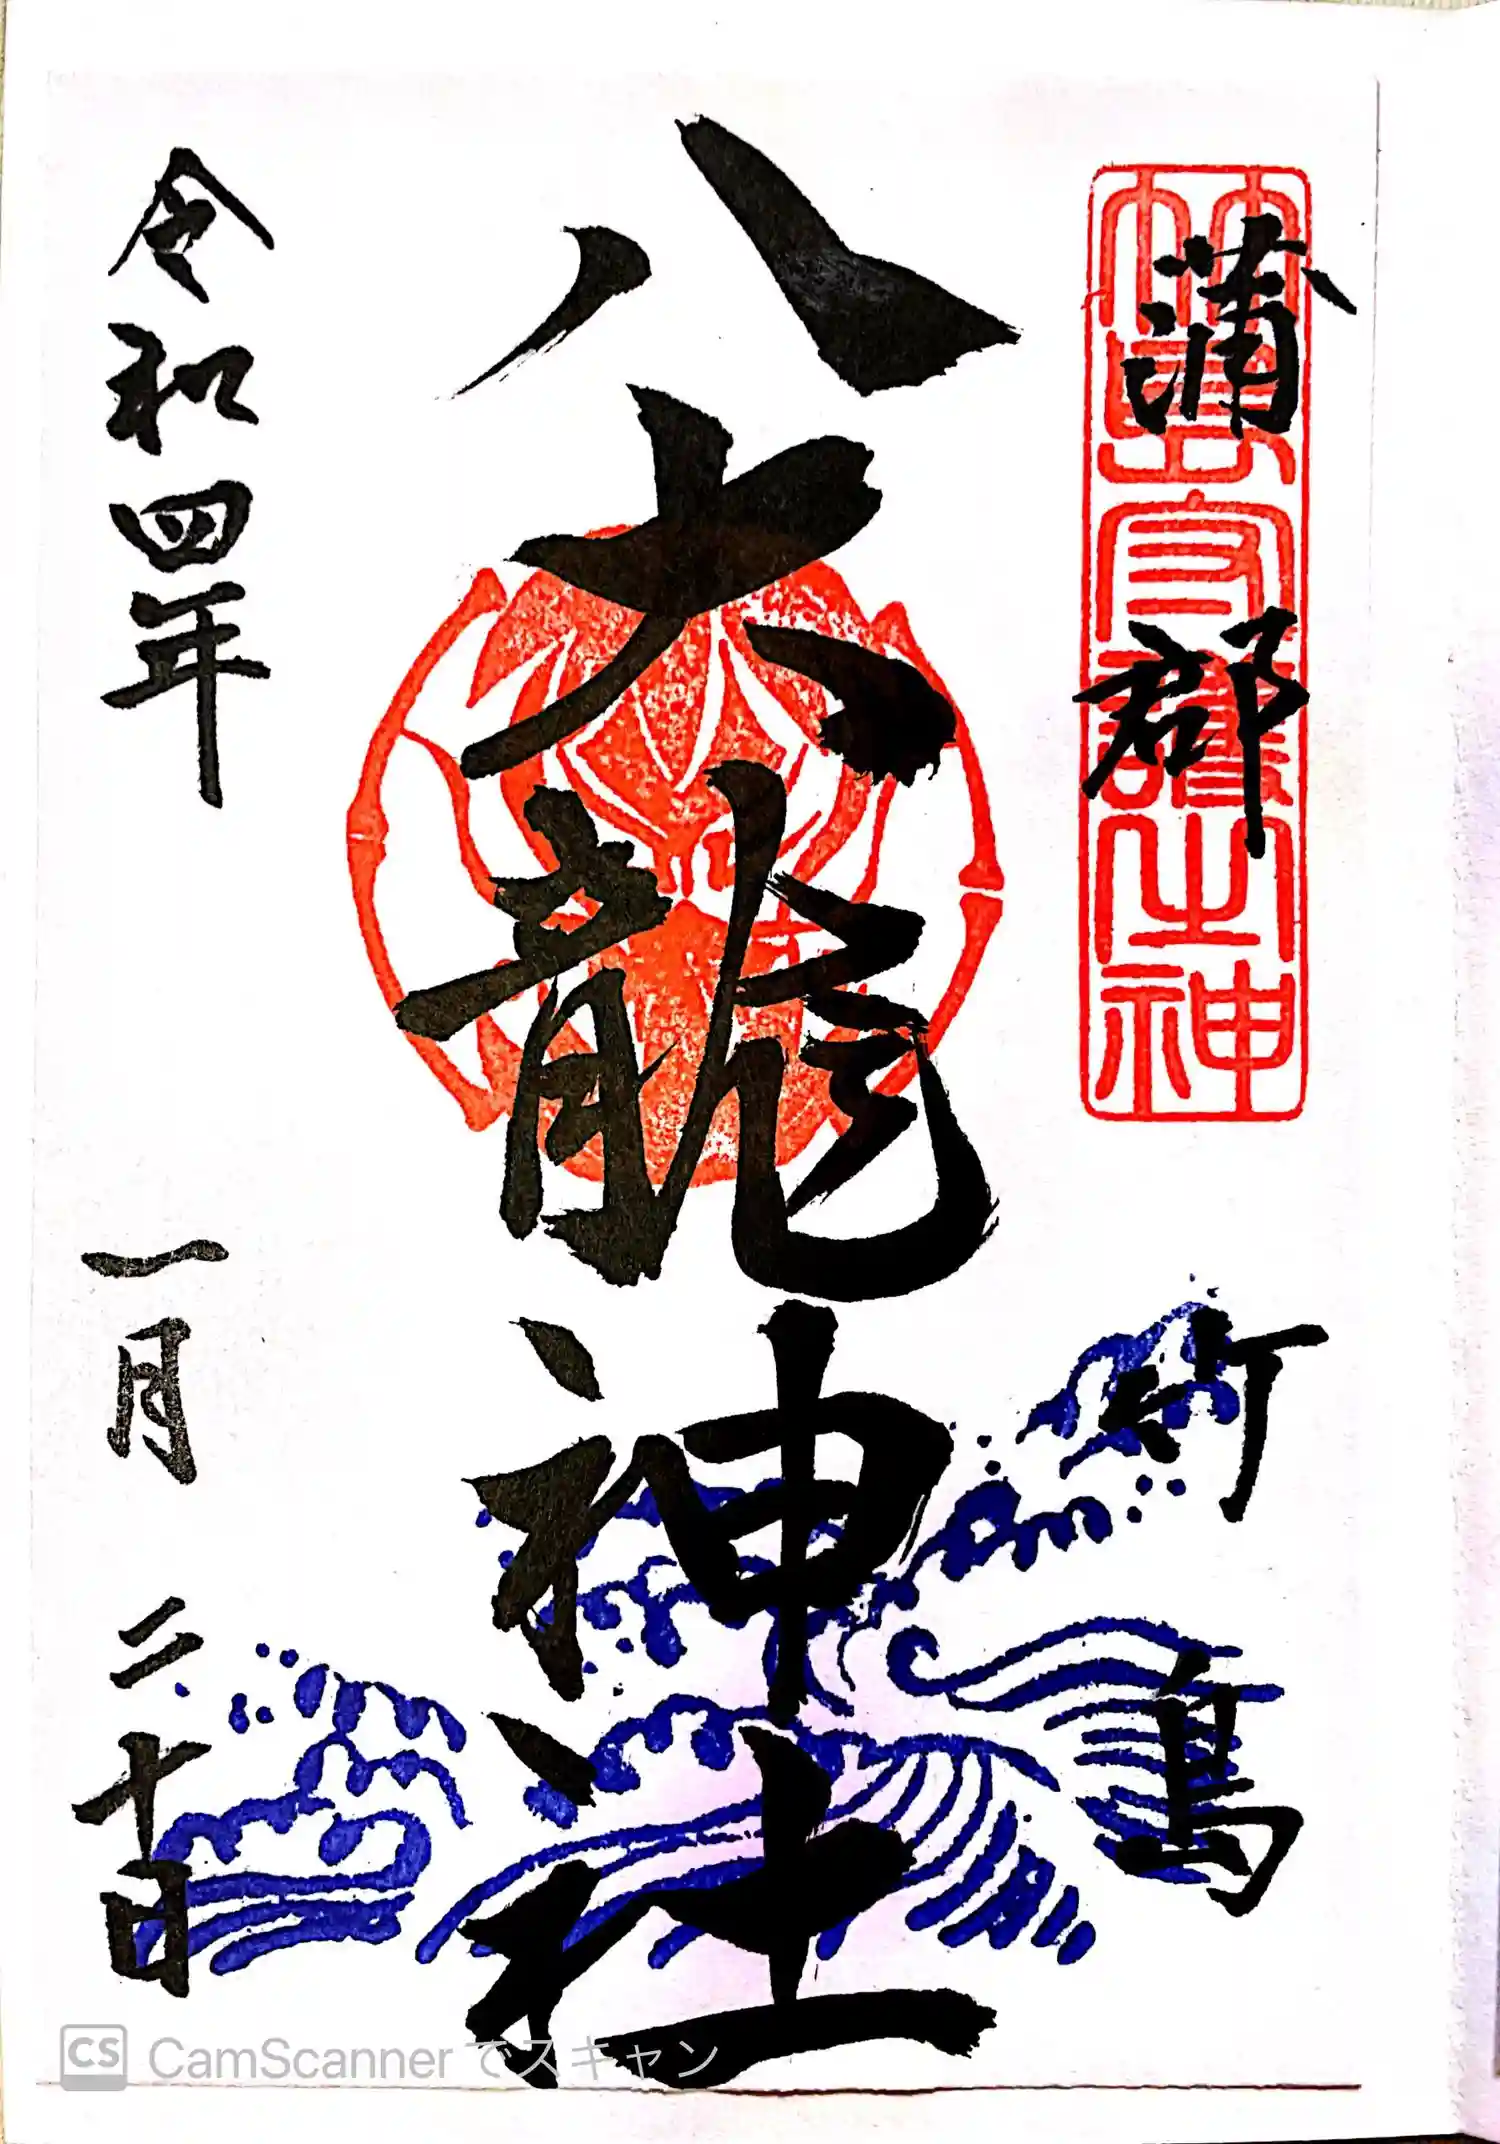 蒲郡 竹島
竹島守護之神
八大龍神社
令和四年 一月 二十日
CS CamScannerでスキャン